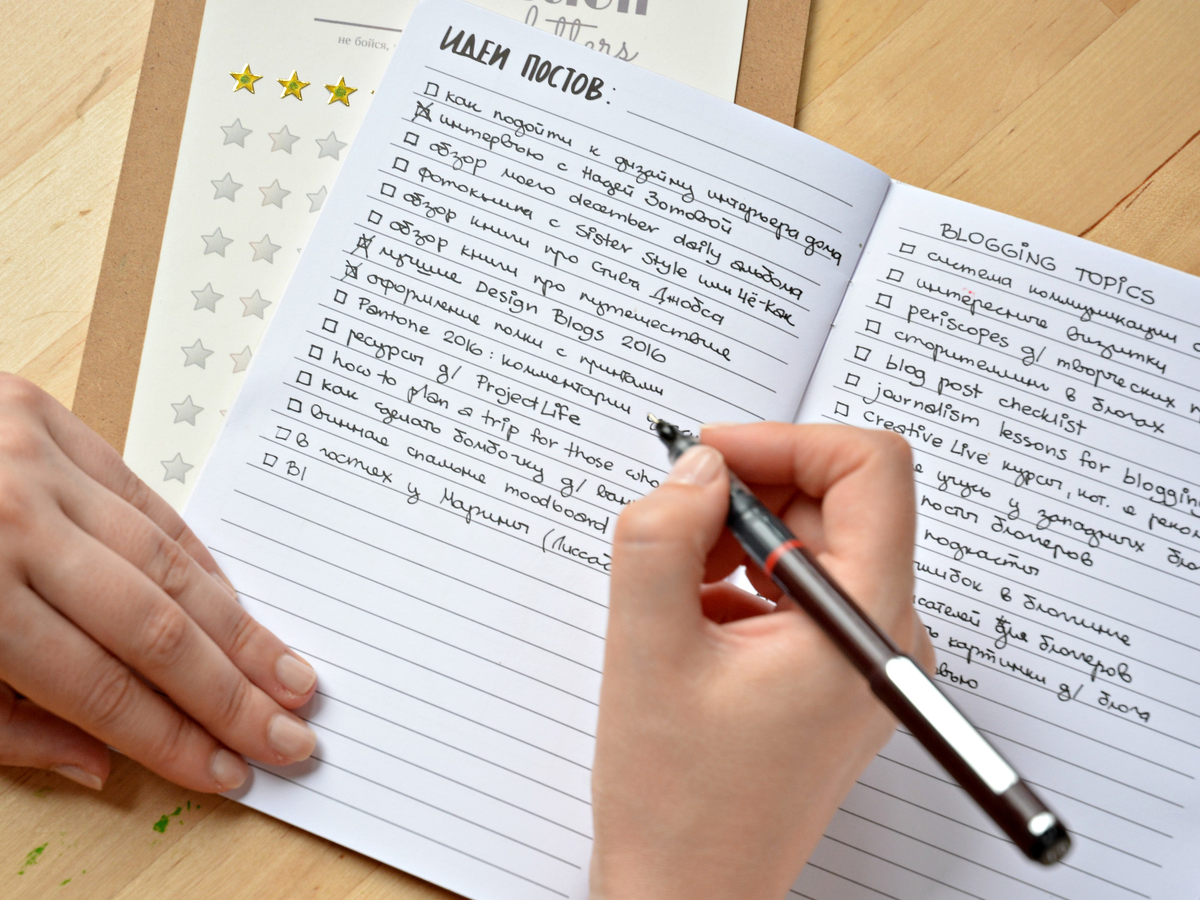 не бойся,
ИДЕИ ПОСТОВ:
как подойти к дизайну интерьера дома
интервью с Надей Зотовой
обзор моего december daily альбома
фотокнижка с Sister Style или чё-как
обзор книги про Стива Джобса
обзор книги про путешествие
лучшие Design Blogs 2016
оформление полки с принтами
Pantone 2016: комментарии
ресурсы д/ Project Life
how to plan a trip for those who
как сделать бомбочку д/
спальне moodboard
в гостях у Марины
ВІ
BLOGGING TOPICS
система коммуникации
интересные визитки
periscopes д/ творческих
сторителлинг в блогах
blog post checklist
journalism lessons for
Creative Live курсы, кот. я
учусь у западных
посты блогеров
подкасты
в блоггинге
для блогеров
картинки д/ блога